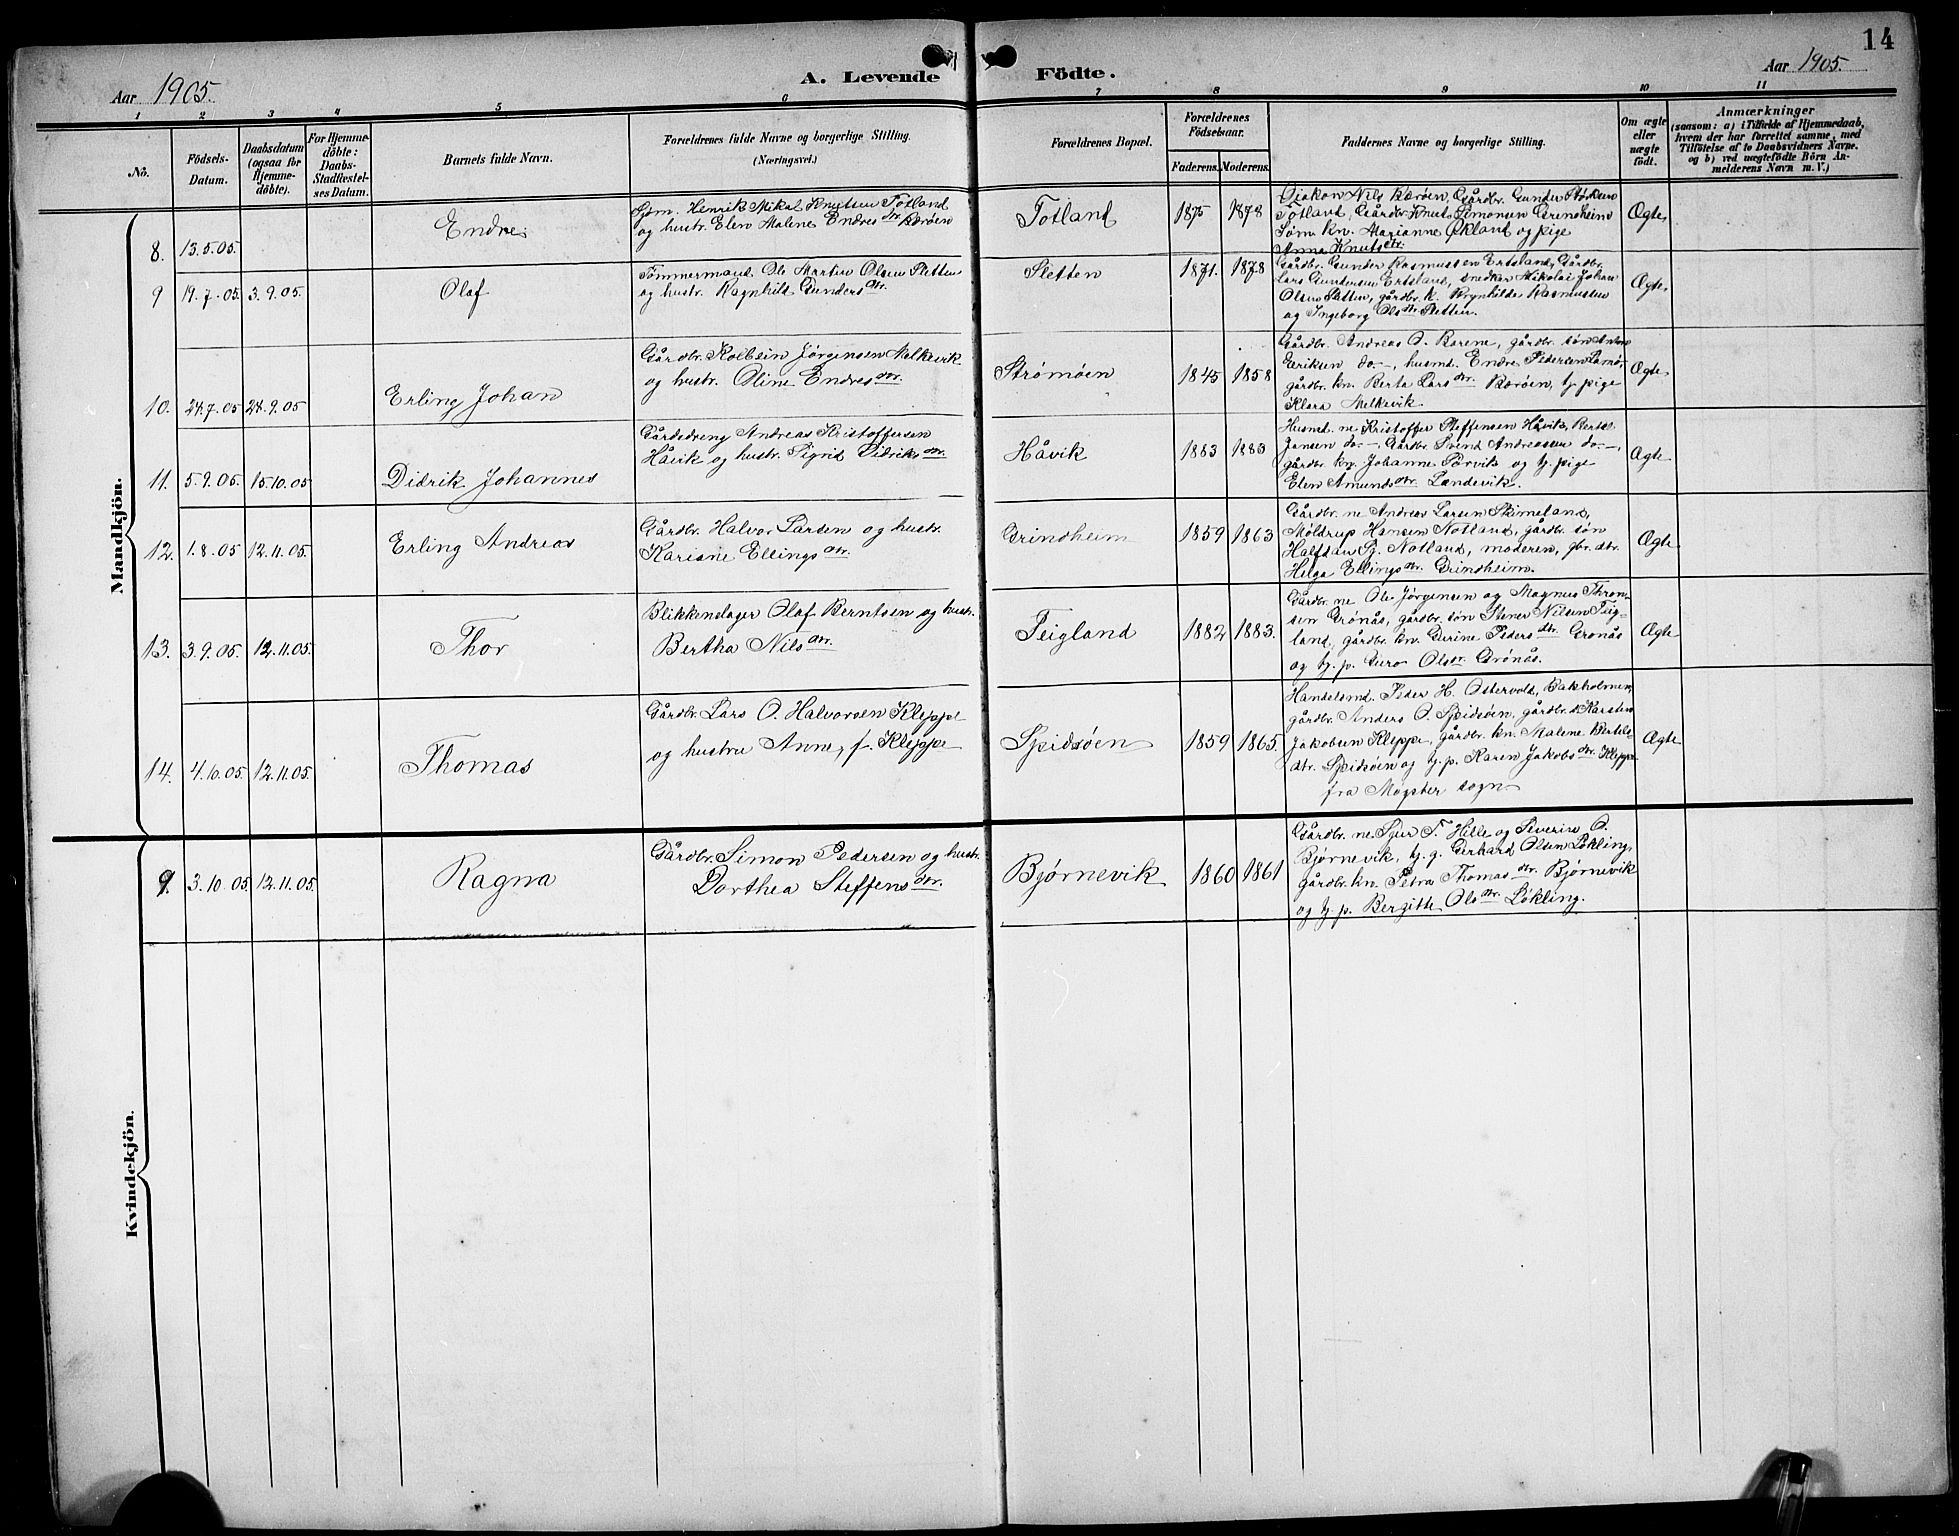 14
Aar 1905.
A. Levende Födte.
Aar 1905.
1 2 3 4 5 6 7 8 9 10 11
No.
Födsels-
Datum.
Daabsdatum
(ogsaa for
Hjemme-
döbte).
For Hjemme-
döbte:
Daabs-
Stadfæstel-
ses Datum.
Barnets fulde Navn.
Forældrenes fulde Navne og borgerlige Stilling.
(Næringsvei.)
Forældrenes Bopæl.
Forældrenes
Födselsaar.
Faderens. Moderens.
Faddernes Navne og borgerlige Stilling.
Om ægte
eller
uægte
födt.
Anmærkninger
(saasom: a) i Tilfælde af Hjemmedaab,
hvem der har forrettet samme, med
Tilföielse af to Daabsvidners Navne.
og b) ved uægtefödte Börn An-
melderens Navn m. V.)
Mandkjön.
8. 13.5.05. Endre
Sjøm. Henrik Mikal Knutsen Totland
og hustr. Elen Malene Endresdtr. Bærøen
Totland 1875 1878
Diakon Nils Bærøen, Gårdbr. Gunder
Totland, Gårdbr. Knut Simonsen Grindheim
Søm. kn. Marianne Økland og pige
Anna Knutsdtr.
Ægte
9 19.7.05. 3.9.05. Olaf
Tømmermand Ole Martin Olsen Sletten
og hustr. Ragnhild Gundersdtr.
Sletten 1871. 1878
Gårdbr. Gunder Rasmussen Ertsland, Gårdbr.
Lars Gundersen Ertsland, Nikolai Johan
Olsen Sletten, gårdbr. k. Brynhilde Rasmussen
og Ingeborg Olsdtr. Sletten.
Ægte
10. 24.7.05 24.9.05 Erling Johan
Gårdbr. Kolbein Jørgensen Melkevik
og hustr. Oline Endresdtr.
Strømøen 1845 1858
Gårdbr. Andreas O. Barene, gårdbr. søn
Eriksen do—, husmd. Endre Pedersen
gårdbr. kn. Berta Larsdtr. Bærøen, tj. pige
Klara Melkevik.
Ægte
11. 5.9.05. 15.10.05 Didrik Johannes
Gårdsdreng Andreas Kristoffersen
Håvik og hustr. Sigrid Didriksdtr.
Håvik 1883 1883
Husmd. ne Kristoffer Steffensen Håvik, Bertel
Jansen do.—, Gårdbr. Svend Andreassen do.—,
gårdbr. kn. Johanne Pørvik og tj. pige
Elen Amundsdtr. Landevik.
Ægte
12. 1.8.05 12.11.05. Erling Andreas
Gårdbr. Halvor Larsen og hustr.
Kariane Ellingsdtr.
Grindheim 1859 1863
Gårdbr. ne Andreas Larsen Stimeland,
Møldrup Hansen Notland, gårdbr. søn
Halfdan Notland, moderen, gbr. dtr.
Helga Ellingsdtr. Grindheim.
Ægte
13. 3.9.05. 12.11.05. Thor
Blikkenslager Olaf Berntsen og hustr.
Bertha Nilsdtr.
Teigland 1882 1883.
Gårdbr. ne Ole Jørgensen og Magnus Thron-
sen Grønås, gårdbr. søn Stener Nilsen Teig-
land, gårdbr. kn. Gurine Pedersdtr. Grønås
og tj. p. Guro Olsdtr. Grønås.
Ægte
14. 4.10.05. 12.11.05. Thomas
Gårdbr. Lars O. Halvorsen Kleppe
og hustru Anne, f. Kleppe
Spidsøen 1859 1865.
Handelsmd. Peder H. Ostervold, Bakholmen,
gårdbr. Anders O. Spidsøen, gårdbr. s. Karsten
Jakobsen Kleppe, gårdbr. kn. Malene Bertels-
dtr. Spidsøen og tj. p. Karen Jakobsdtr. Kleppe
fra Møgster sogn
Ægte
Kvindekjön.
9. 3.10.05 12.11.05. Ragna
Gårdbr. Simon Pedersen og hustr.
Dorthea Steffensdtr.
Bjørnevik 1860 1861
Gårdbr. ne Sjur T. Hille og Severin O.
Bjørnevik, tj. g. Gerhard Olsen Løkling,
gårdbr. kn. Petra Thomasdtr. Bjørnevik
og tj. p. Bergitte Olsdtr. Løkling.